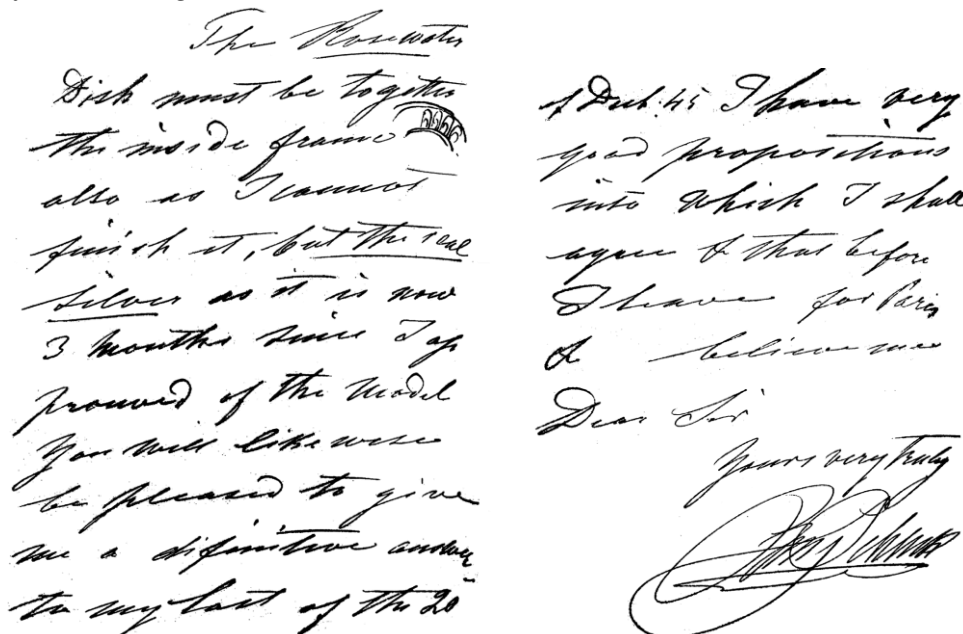 The Rosewater
Dish must be together
the inside frame
also as I cannot
finish it, but the real
silver as it is now
3 months since I ap
prouved of the model
You will likewise
be pleased to give
me a difinitive answer
to my last of the 20
of I have very
good propositions
into which I shall
agree & that before
I leave for Paris
& believe me
Dear Sir
Yours very truly